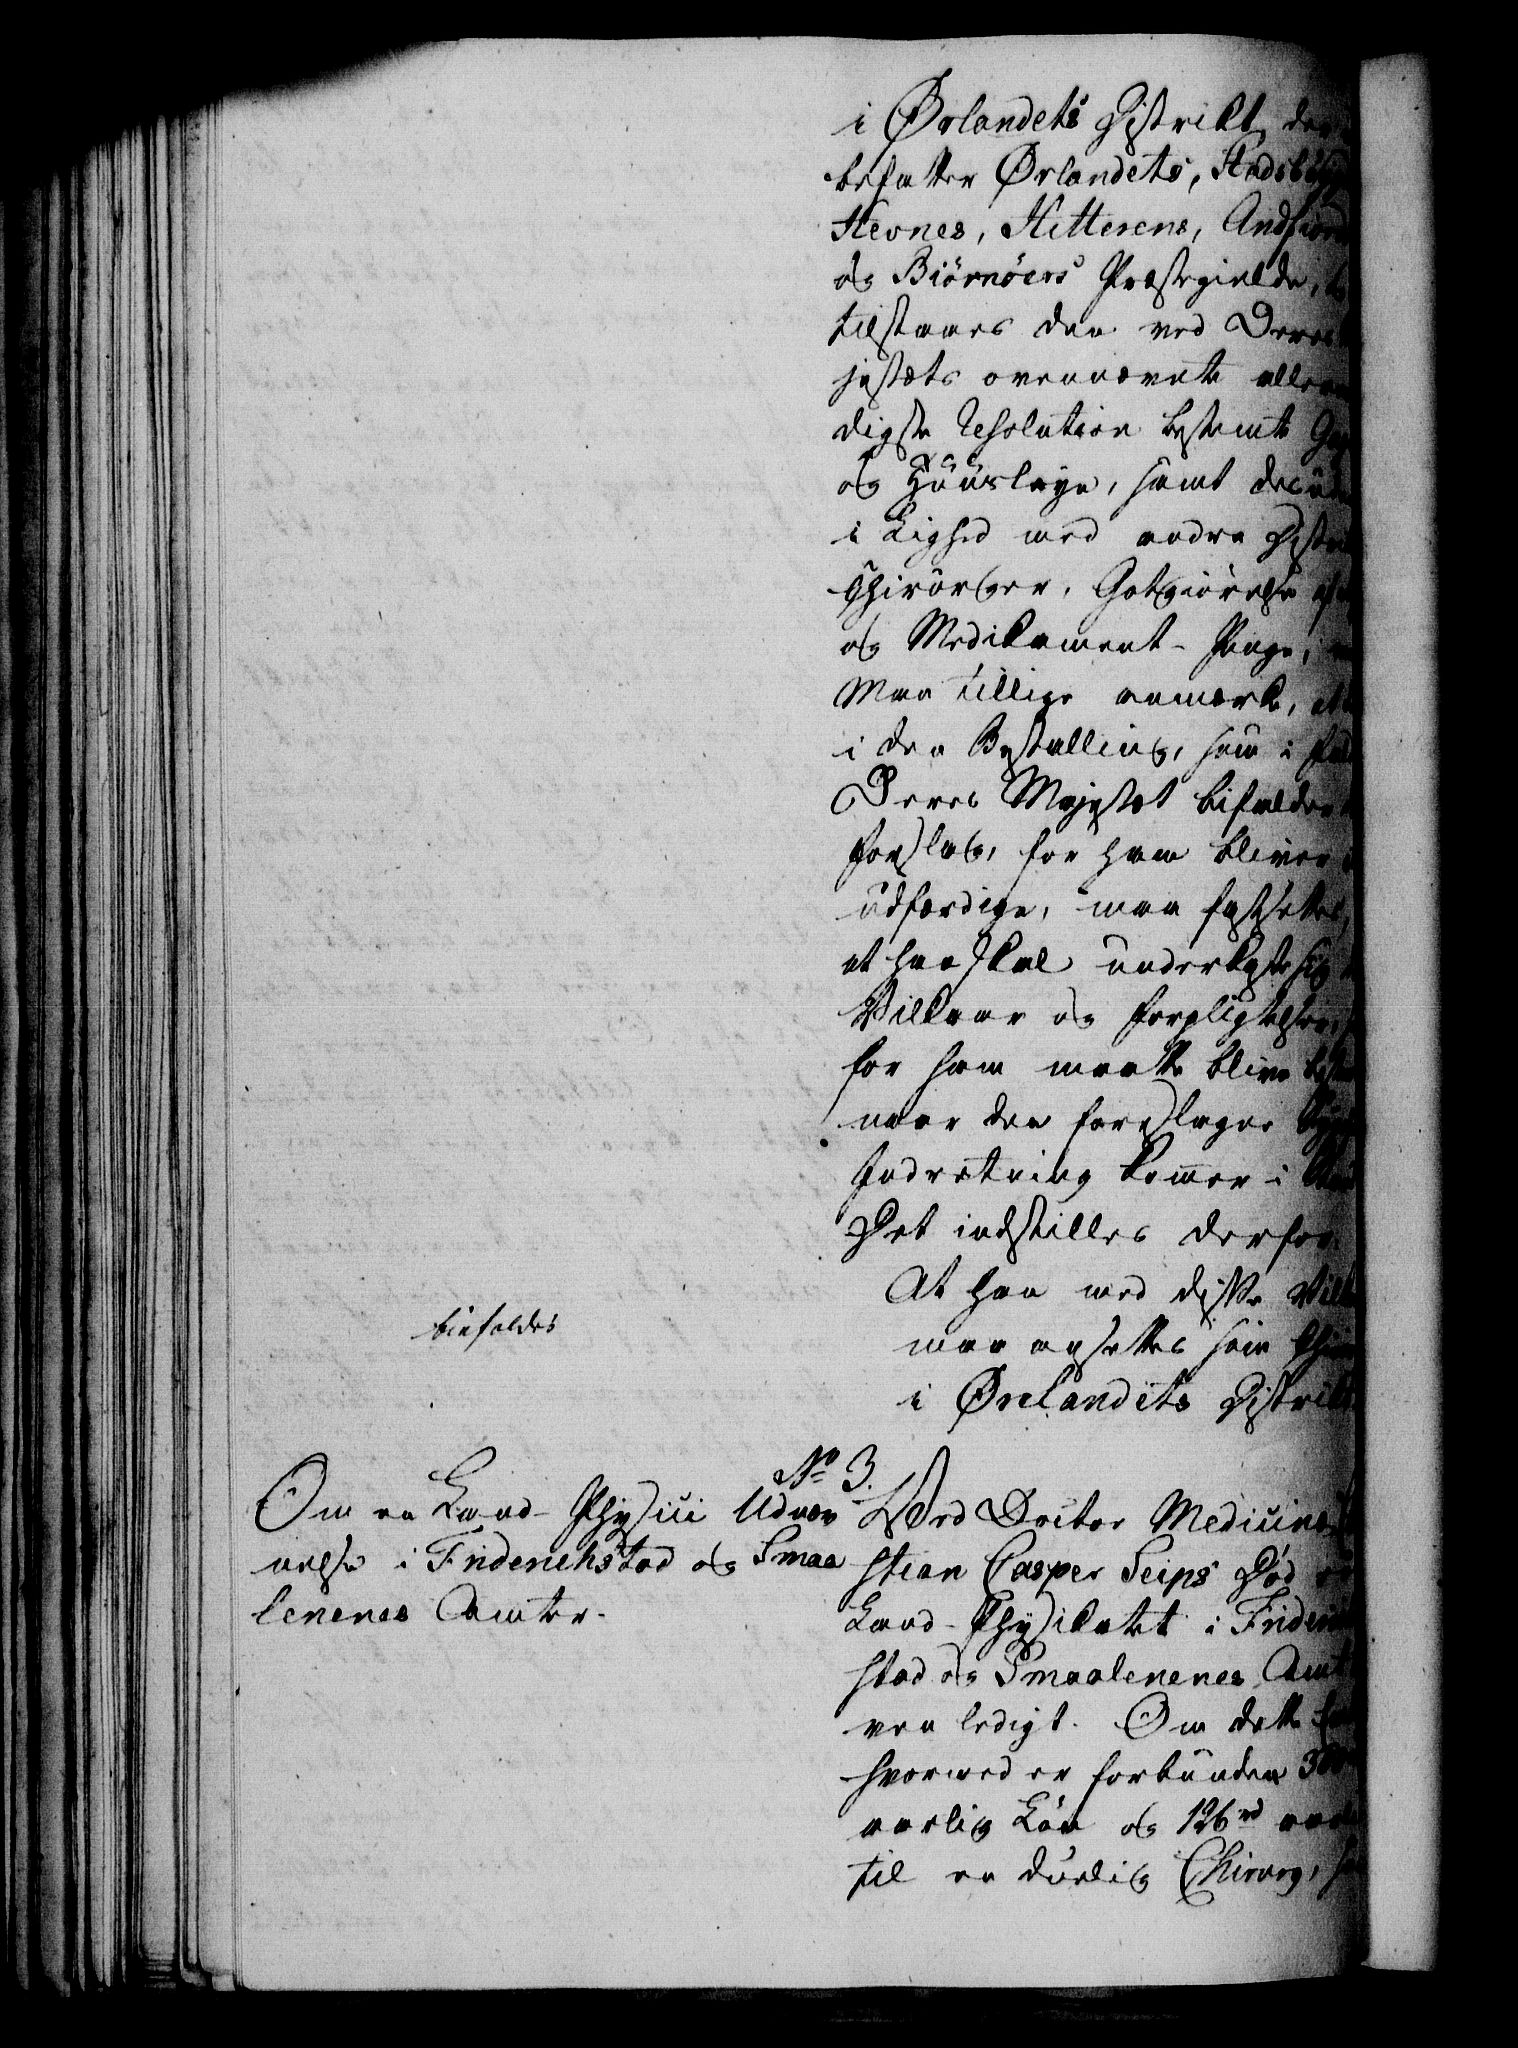 i Ørlandets Distrikt, der
befatter Ørlandets, Stadsbøygd
Hevnes, Hitterens, Andfiord
og Biörnöers Præstegielde,
tilstaaes den ved Deres
jestæts ovennævnte allern
digste Resolution bestemte Gag
og Huusleye, samt desud
i Lighed med andre Distri
Chirurger, Godtgiørelse af
og Medikament-Penge,
Maa tillige anmærke, at
i den Bestalling, som i fald
Deres Majestæt bifalder
Forslag, for ham bliver
udfærdige, maa fastsættes,
at han skal underkaste sig
Vilkaar og Forpligtelser,
for ham maatte blive bestem
naar den foreslagne Syge
Indretning kommer i Stan
Det indstilles derfor:
At han med disse Vilk
maa ansættes som Chir
i Ørelandets Distrikt
bifaldes
No 3.
Om en Land-Physici Udnæv
nelse i Friderichstad og Smaa
lenenes Amter.
Ved Doctor Medicinæ
stian Casper Seips Død er
Land-Physikatet i Frideri
stad og Smaalenenes Amt
ven ledigt. Om dette
hvormed er forbunden 300
aarlig Løn og 126 rd aarl
til en duelig Chirurg,